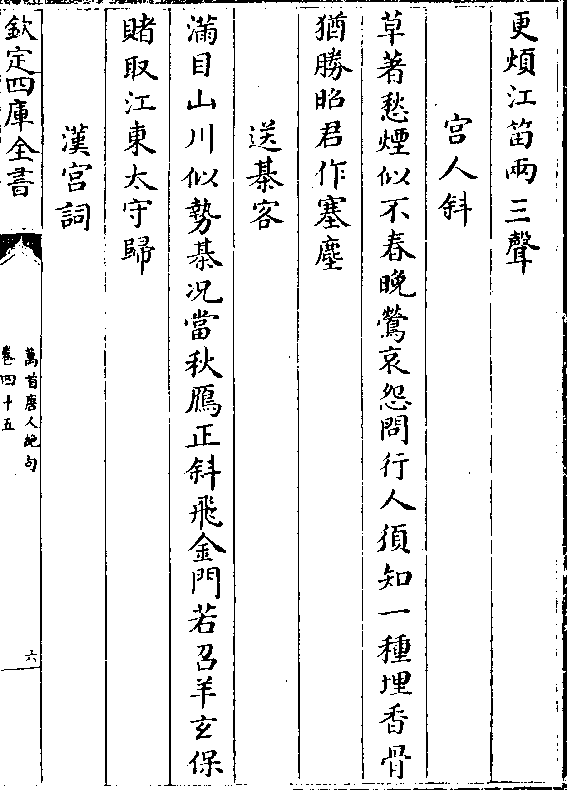 更煩江笛兩三聲
宫人斜
草著愁煙似不春晚鶯哀怨問行人須知一種埋香骨
猶勝昭君作塞塵
送棊客
滿目山川似勢棊况當秋鴈正斜飛金門若召羊玄保
賭取江東太守歸
漢宫詞
欽定四庫全書
萬首唐人絶句
卷四十五
六